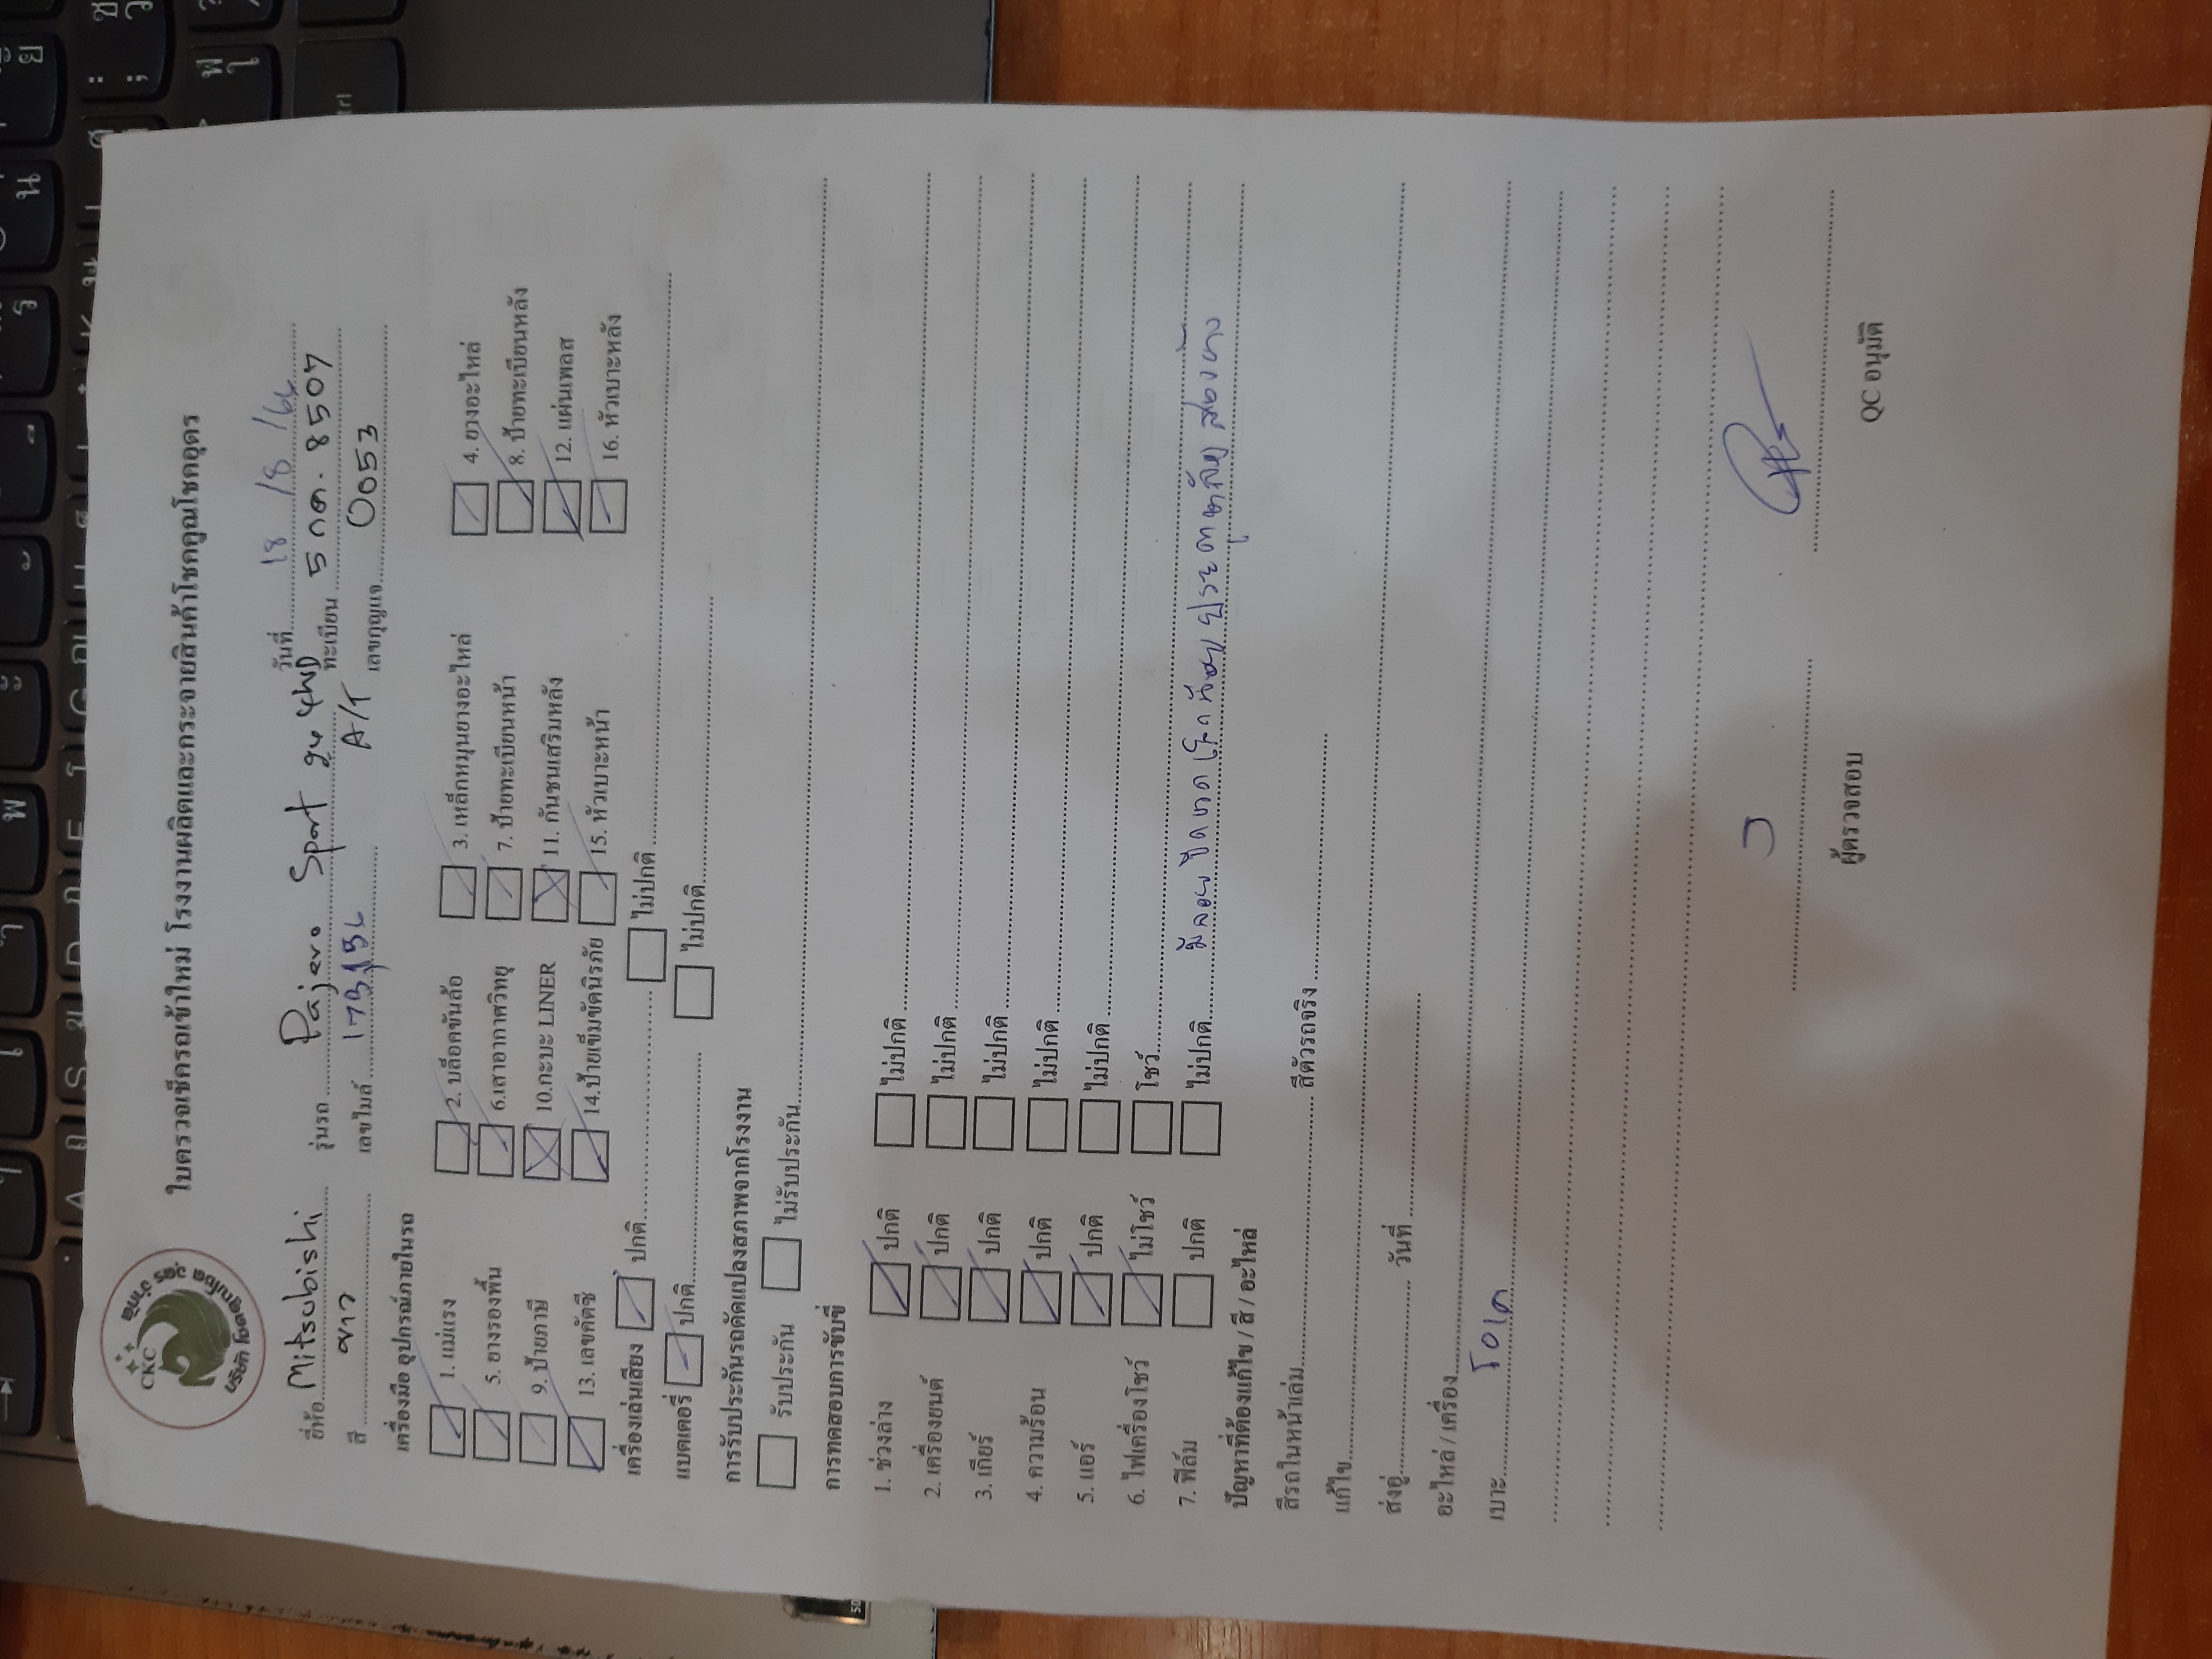 CKC
บริษัท โชคคูณโชค อุดร จำกัด
ใบตรวจเช็กรถเข้าใหม่ โรงงานผลิตและกระจายสินค้าโชคคูณโชคอุดร
วันที่ 18 /8 /66
ยี่ห้อ Mitsubishi รุ่นรถ Pajero Sport 4WD ทะเบียน 5 กต. 8507
สี ขาว เลขไมล์ A/T เลขกุญแจ 0053
เครื่องมือ อุปกรณ์ภายในรถ
1. แม่แรง 2. บล็อกขันล้อ 3. เหล็กหมุนยางอะไหล่ 4. ยางอะไหล่
5. ยางรองพื้น 6.เสาอากาศวิทยุ 7. ป้ายทะเบียนหน้า 8. ป้ายทะเบียนหลัง
9. ป้ายภาษี 10.กะบะ LINER 11. กันชนเสริมหลัง 12. แผ่นเพลส
13. เลขคัดซี 14.ป้ายเข็มขัดนิรภัย 15. หัวเบาะหน้า 16. หัวเบาะหลัง
เครื่องเล่นเสียง ปกติ ไม่ปกติ
แบตเตอรี่ ปกติ ไม่ปกติ
การรับประกันรถดัดแปลงสภาพจากโรงงาน
รับประกัน ไม่รับประกัน
การทดสอบการขับขี่
1. ช่วงล่าง ปกติ ไม่ปกติ
2. เครื่องยนต์ ปกติ ไม่ปกติ
3. เกียร์ ปกติ ไม่ปกติ
4. ความร้อน ปกติ ไม่ปกติ
5. แอร์ ปกติ ไม่ปกติ
6. ไฟเครื่องโชว์ ไม่โชว์ โชว์
7. ฟิล์ม ปกติ ไม่ปกติ มีลอย ประตูหลัง สองข้าง
ปัญหาที่ต้องแก้ไข / สี / อะไหล่
สีรถในหน้าเล่ม สีตัวรถจริง
แก้ไข
ส่งอู่ วันที่
อะไหล่ / เครื่อง
เบาะ
ผู้ตรวจสอบ QC อนุมัติ